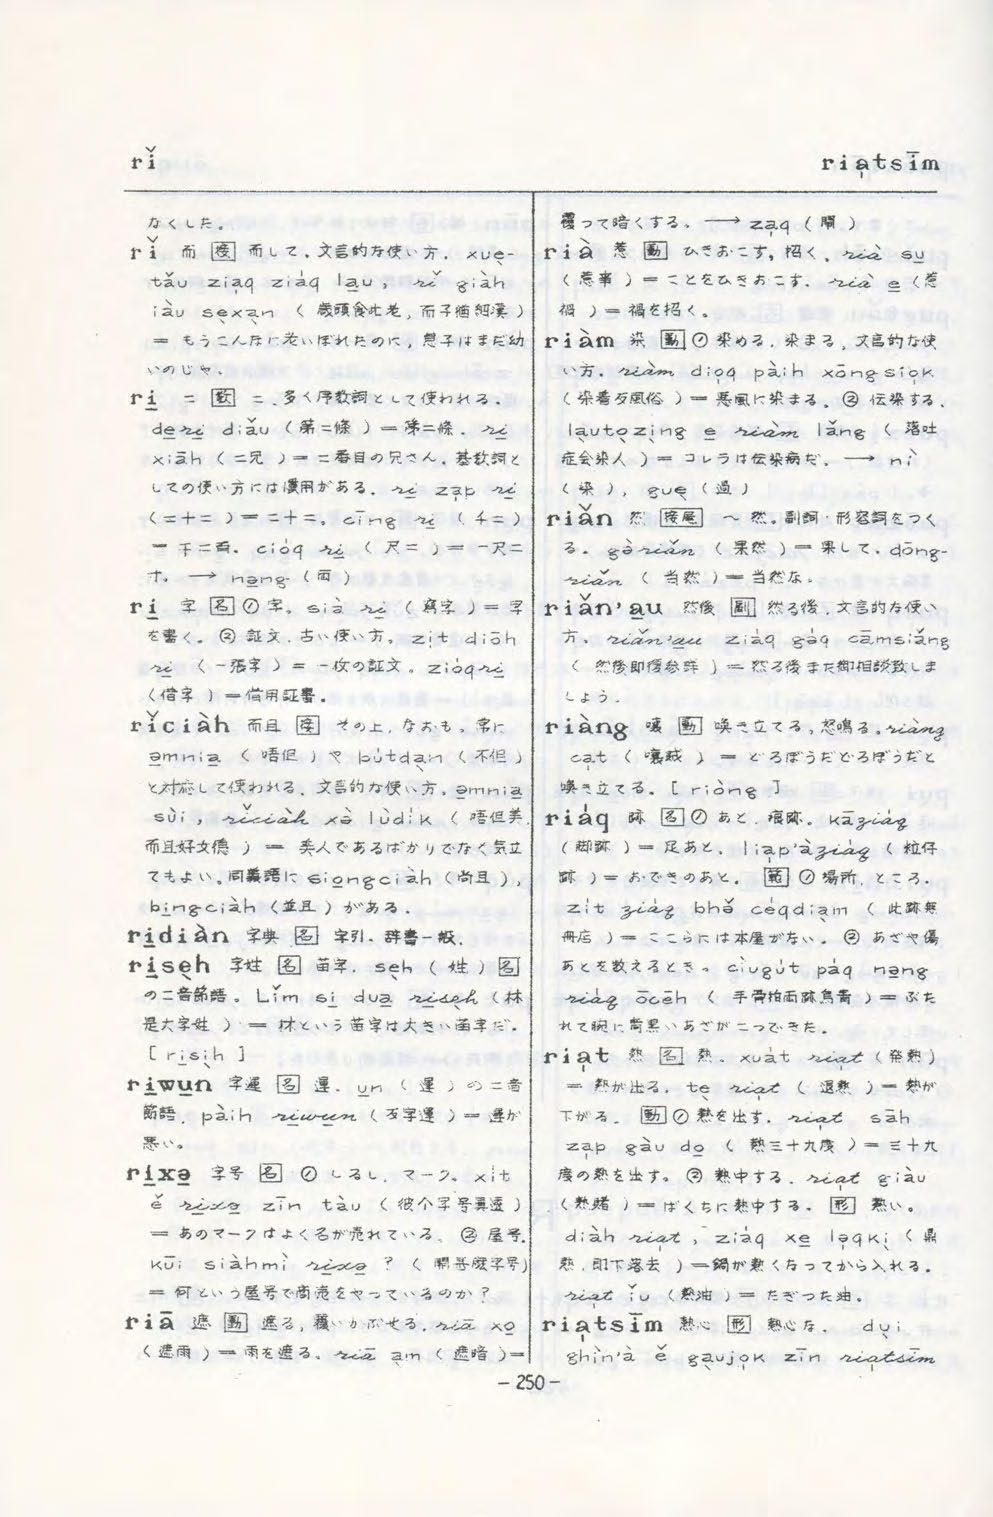 rǐ
ri̍atsīm
なくした。
rǐ 而 [接] 而して。文言的な使い方. xue̱-
tǎu zia̍q ziáq la̱u, rǐ giàh
iàu se̱xa̱n ( 歳頭食此老, 而子猶細漢 )
= もうこんなに老いぼれたのに, 息子はまだ幼
いのじゃ.
ri̱ 二 [数] 二. 多く序数詞として使われる.
de̱ri̱ diǎu ( 第二條 ) = 第二條. ri̱
xiāh ( 二兄 ) = 二番目の兄さん. 基数詞と
しての使い方には慣用がある. ri̱ za̍p ri̱
(二十二 ) = 二十二. cīng ri̱ ( 千二 )
= 千二百. cióq ri̱ ( 尺二 ) = 一尺二
寸. → nəng- ( 両 )
ri̱ 字 [名] ① 字。 sià ri̱ ( 寫字 ) = 字
を書く。 ② 証文. 古い使い方。 zi̍t diōh
ri̱ ( 一張字 ) = 一枚の証文。 zióqri̱
(借字 ) = 借用証書.
rǐciàh 而且 [接] その上, なおも, 常に
əmnia̱ ( 唔但 ) や bútda̱n ( 不但 )
と対応して使われる. 文言的な使い方. əmnia̱
sùi, rǐciàh xə̀ lùdík ( 唔但美,
而且好女德 ) = 美人であるばかりでなく気立
てもよい。同義語に siongciàh (尚且 ),
bingciàh (並且 ) がある.
ri̱diàn 字典 [名] 字引. 辞書一般.
ri̱se̱h 字姓 [名] 苗字. se̱h ( 姓 ) [名]
の二音節語. Lǐm si̱ dua̱ ri̱se̱h (林
是大字姓 ) = 林という苗字は大きい苗字だ.
[ ri̱si̱h ]
ri̱wu̱n 字運 [名] 運. u̱n ( 運 ) の二音
節語. pàih ri̱wu̱n ( 歹字運 ) = 運が
悪い。
ri̱xə̱ 字号 [名] ① しるし. マーク。 xit
ě ri̱xə̱ zīn tàu ( 彼个字号真透 )
= あのマークはよく名が売れている. ② 屋号.
kūi siàhmì ri̱xə̱ ? ( 開甚麼字号)
= 何という屋号で商売をやっているのか?
riā 遮 [動] 遮る, 覆いかぶせる. riā xo̱
( 遮雨 ) = 雨を遮る。 riā am ( 遮暗 )=
覆って暗くする. → za̱q ( 閘 )
rià 惹 [動] ひきおこす, 招く. rià su̱
( 惹事 ) = ことをひきおこす. rià e̱ (惹
禍 ) = 禍を招く。
riàm 染 [動] ① 染める. 染まる. 文言的な使
い方. riàm dio̍q pàih xōngsio̍k
( 染着歹風俗 ) = 悪風に染まる。 ② 伝染する.
làutozi̱ng e̱ riàm lǎng ( 落吐
症会染人 ) = コレラは伝染病だ. → nì
( 染 ), gue̱ ( 過 )
riǎn 然 [接尾] ～然。副詞·形容詞をつく
る. gə̀riǎn ( 果然 ) = 果して. dōng-
riǎn ( 当然 ) = 当然な.
riǎn'au̱ 然後 [副] 然る後. 文言的な使い
方. riǎn'au̱ ziáq gáq cāmsiǎng
( 然後即佮參詳 ) = 然る後また御相談致しま
しょう.
riàng 嚷 [動] 喚き立てる, 怒鳴る. riàng
ca̍t ( 嚷賊 ) = どろぼうだどろぼうだと
喚き立てる. [ riòng ]
riáq 跡 [名] ① あと. 痕跡。 kāziáq
( 脚跡 ) = 足あと. lia̍p'àziáq ( 粒仔
跡 ) = おできのあと. [範] ① 場所. ところ.
zit ziáq bhə̌ céqdia̱m ( 此跡無
冊店 ) = ここらには本屋がない. ② あざや傷
あとを数えるとき。 ciùgút páq nəng
riáq ōcēh ( 手骨拍両跡烏青 ) = ぶた
れて腕に青黒いあざが二つできた.
ria̍t 熱 [名] 熱. xuát ria̍t (発熱)
= 熱が出る. te̱ ria̍t ( 退熱 ) = 熱が
下がる. [動] ① 熱を出す. ria̍t sāh
za̍p gàu do̱ ( 熱三十九度 ) = 三十九
度の熱を出す。 ② 熱中する. ria̍t giàu
( 熱賭 ) = ばくちに熱中する. [形] 熱い。
diàh ria̍t, ziáq xe̱ lə̍qki̱ ( 鼎
熱, 即下落去 ) = 鍋が熱くなってから入れる.
ria̍t ǐu ( 熱油 ) = たぎった油.
ria̍tsīm 熱心 [形] 熱心な. du̱i
ghìn'à ě ga̱ujo̍k zīn ria̍tsīm
－250－